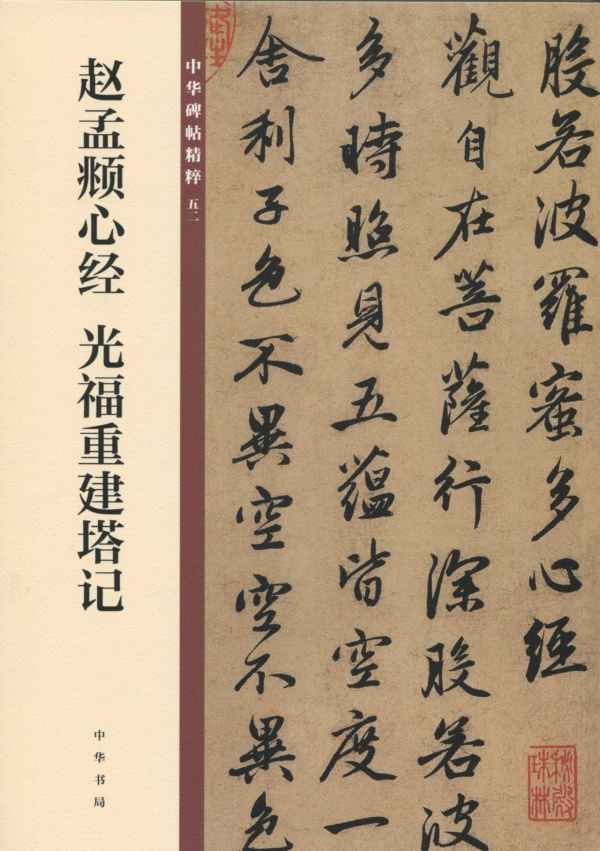 赵孟𫖯心经 光福重建塔记
中华书局
中华碑帖精粹 五二
般若波羅蜜多心經
觀自在菩薩行深般若波
多時照見五蘊皆空度一
舍利子色不異空空不異色
秘殿
珠林